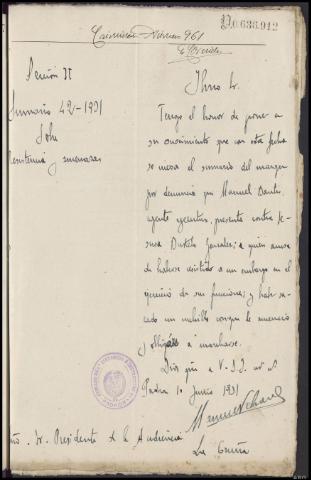 D.0.636.912
961
Sección II
Sumario 42-1931
Sobre
Resistencia y amenazas
Ilmo Sr.
Tengo el honor de poner a
su conocimiento que con esta fecha
se incoa el sumario del margen
por denuncia que Manuel
agente ejecutivo, presenta contra Je-
susa González; a quien acusa
de haberse resistido a un embargo en el
ejercicio de sus funciones; y haber sa-
cado un cuchillo con que le amenazó
y obligóle a marcharse.
Dios que a V-S.I.
Padrón 10 Junio 1931
Sr. Presidente de la Audiencia
La Coruña